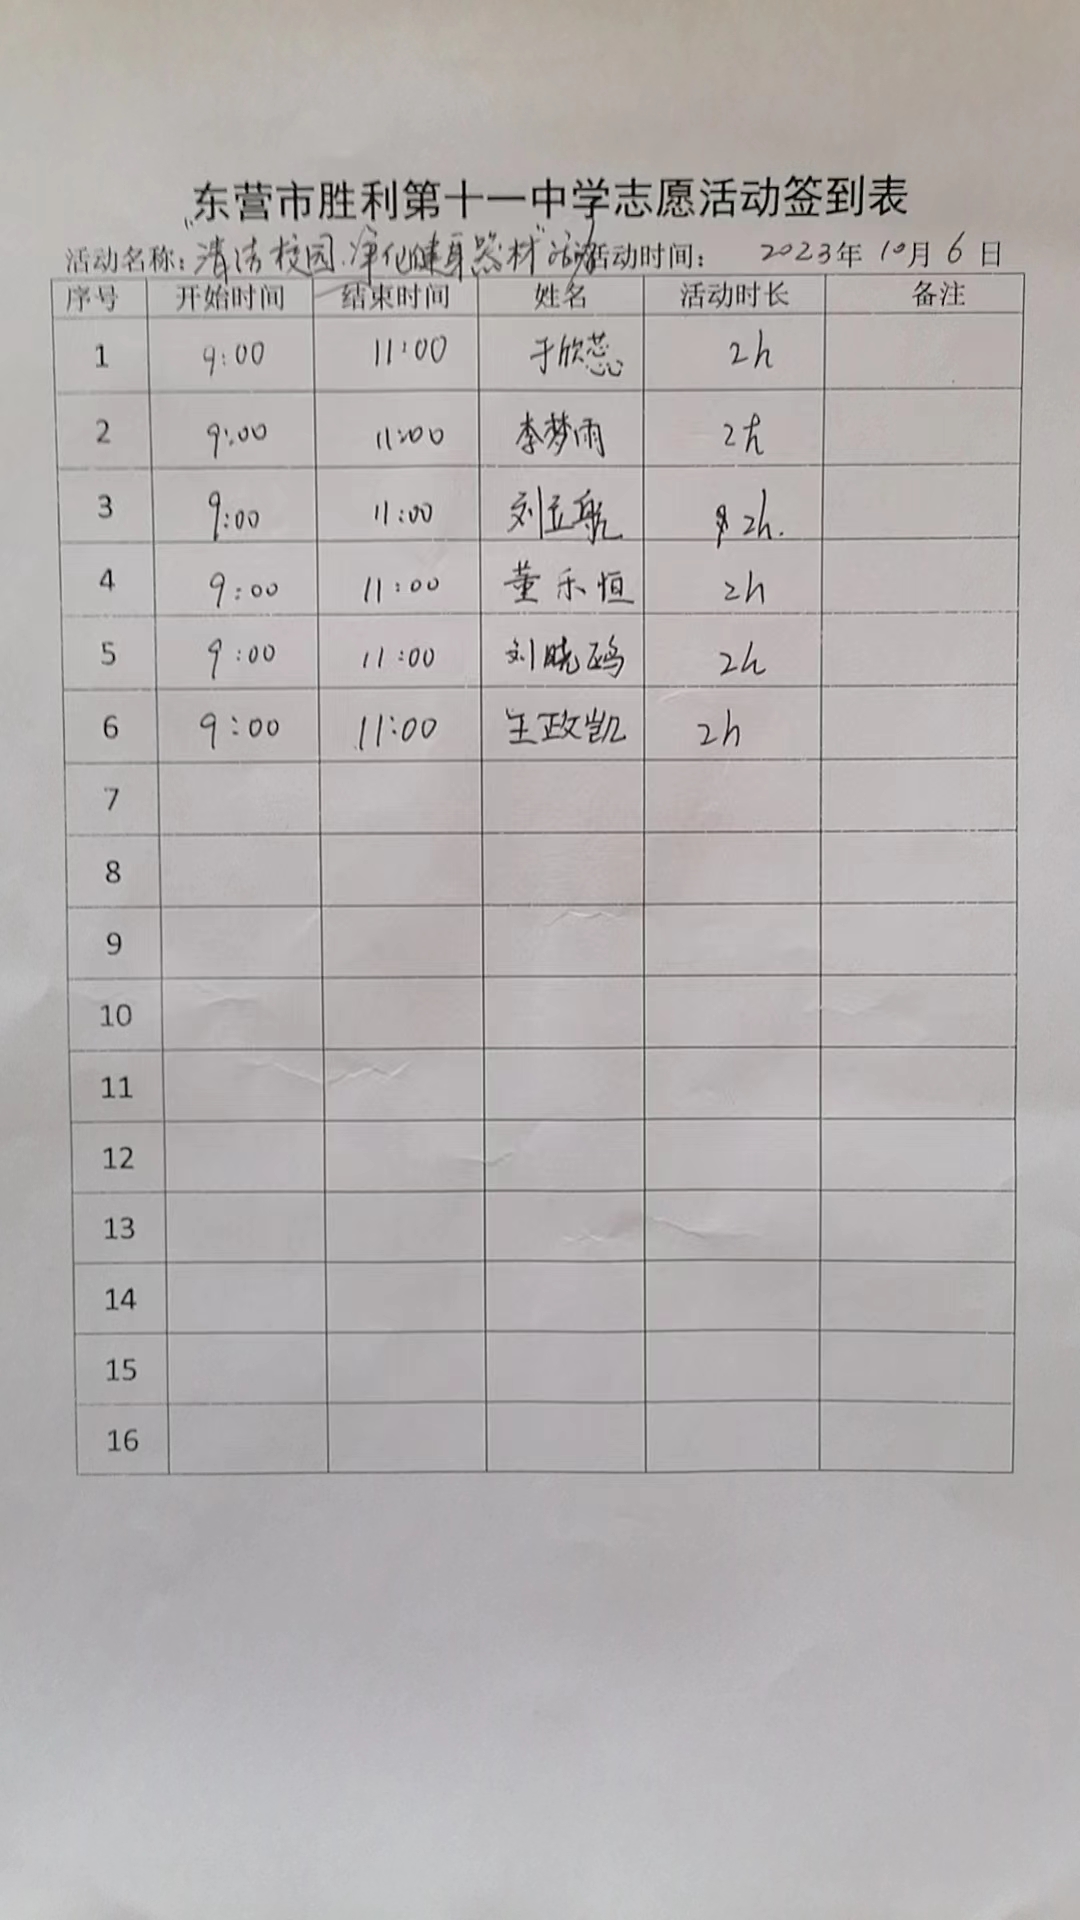 东营市胜利第十一中学志愿活动签到表
活动名称:“清洁校园.净化健身器材”活动 活动时间: 2023年10月6日
序号 开始时间 结束时间 姓名 活动时长 备注
1 9:00 11:00 于欣蕊 2h
2 9:00 11:00 李梦雨 2h
3 9:00 11:00 刘立航 2h.
4 9:00 11:00 董乐恒 2h
5 9:00 11:00 刘晓鸥 2h
6 9:00 11:00 王政凯 2h
7
8
9
10
11
12
13
14
15
16